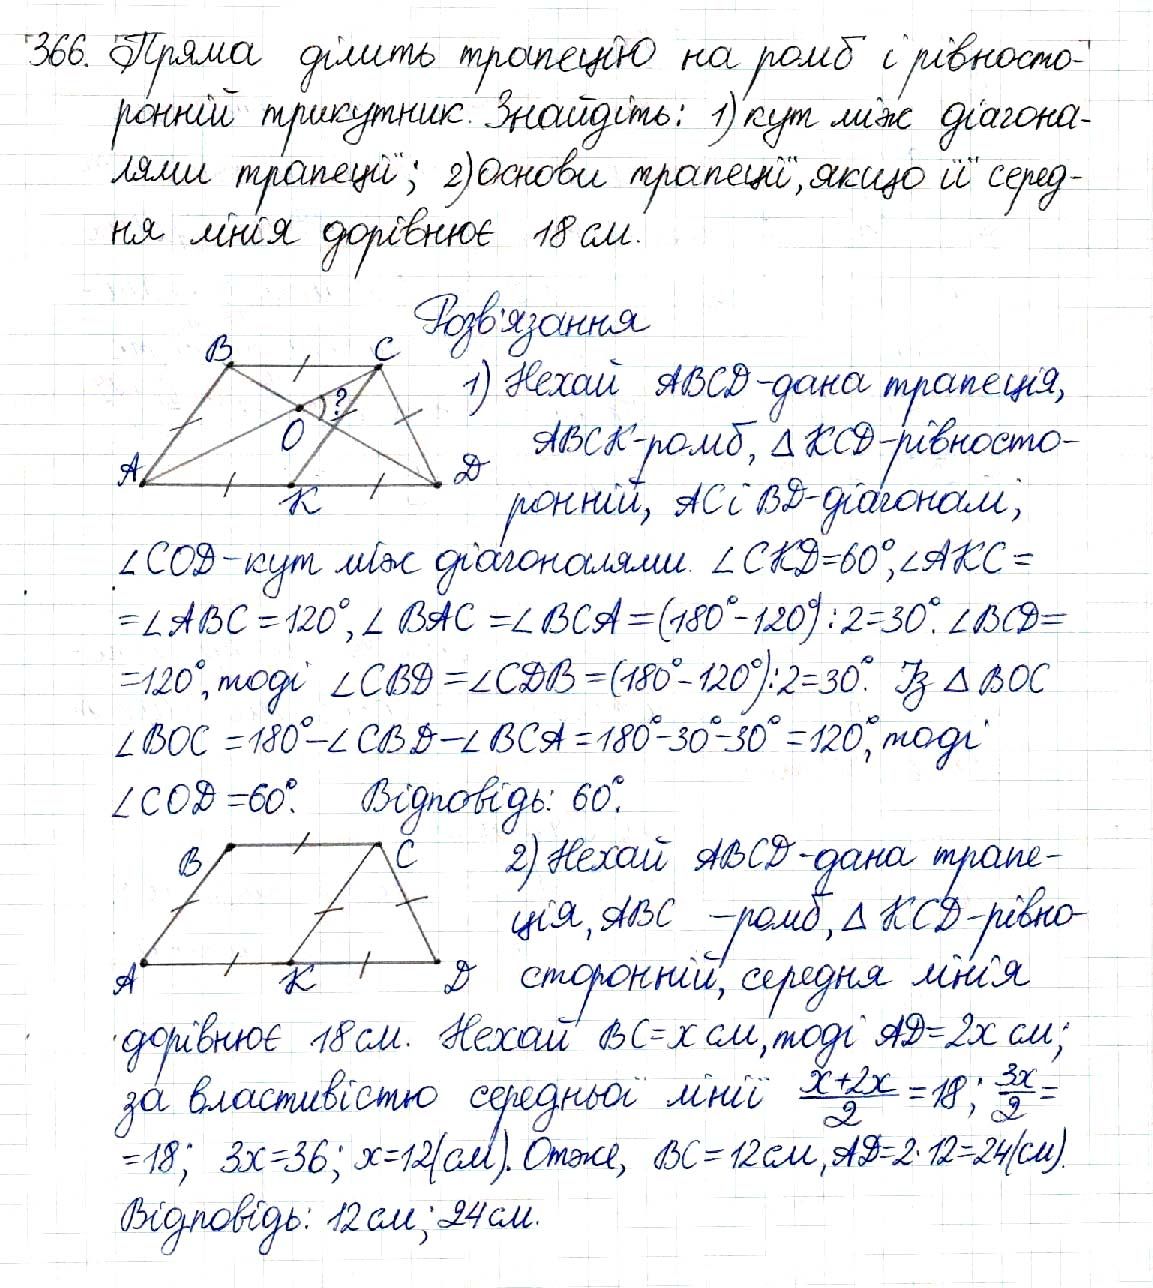 366. Пряма ділить трапецію на ромб і рівносто-
ронній трикутник. Знайдіть: 1) кут між діагона-
лями трапеції; 2) основи трапеції, якщо її серед-
ня лінія дорівнює 18 см.
Розв'язання
B C
O ?
A K D
1) Нехай ABCD - дана трапеція,
ABCK - ромб, △ KCD - рівносто-
ронній, AC і BD - діагоналі,
∠COD - кут між діагоналями. ∠CKD = 60°, ∠AKC =
= ∠ABC = 120°, ∠BAC = ∠BCA = (180° - 120°) : 2 = 30°. ∠BCD =
= 120°, тоді ∠CBD = ∠CDB = (180° - 120°) : 2 = 30°. Із △ BOC
∠BOC = 180° - ∠CBD - ∠BCA = 180° - 30° - 30° = 120°, тоді
∠COD = 60°. Відповідь: 60°.
B C
A K D
2) Нехай ABCD - дана трапе-
ція, ABC - ромб, △ KCD - рівно-
сторонній, середня лінія
дорівнює 18 см. Нехай BC = x см, тоді AD = 2x см;
за властивістю середньої лінії (x+2x)/2 = 18; 3x/2 =
= 18; 3x = 36; x = 12 (см). Отже, BC = 12 см, AD = 2 · 12 = 24 (см).
Відповідь: 12 см; 24 см.